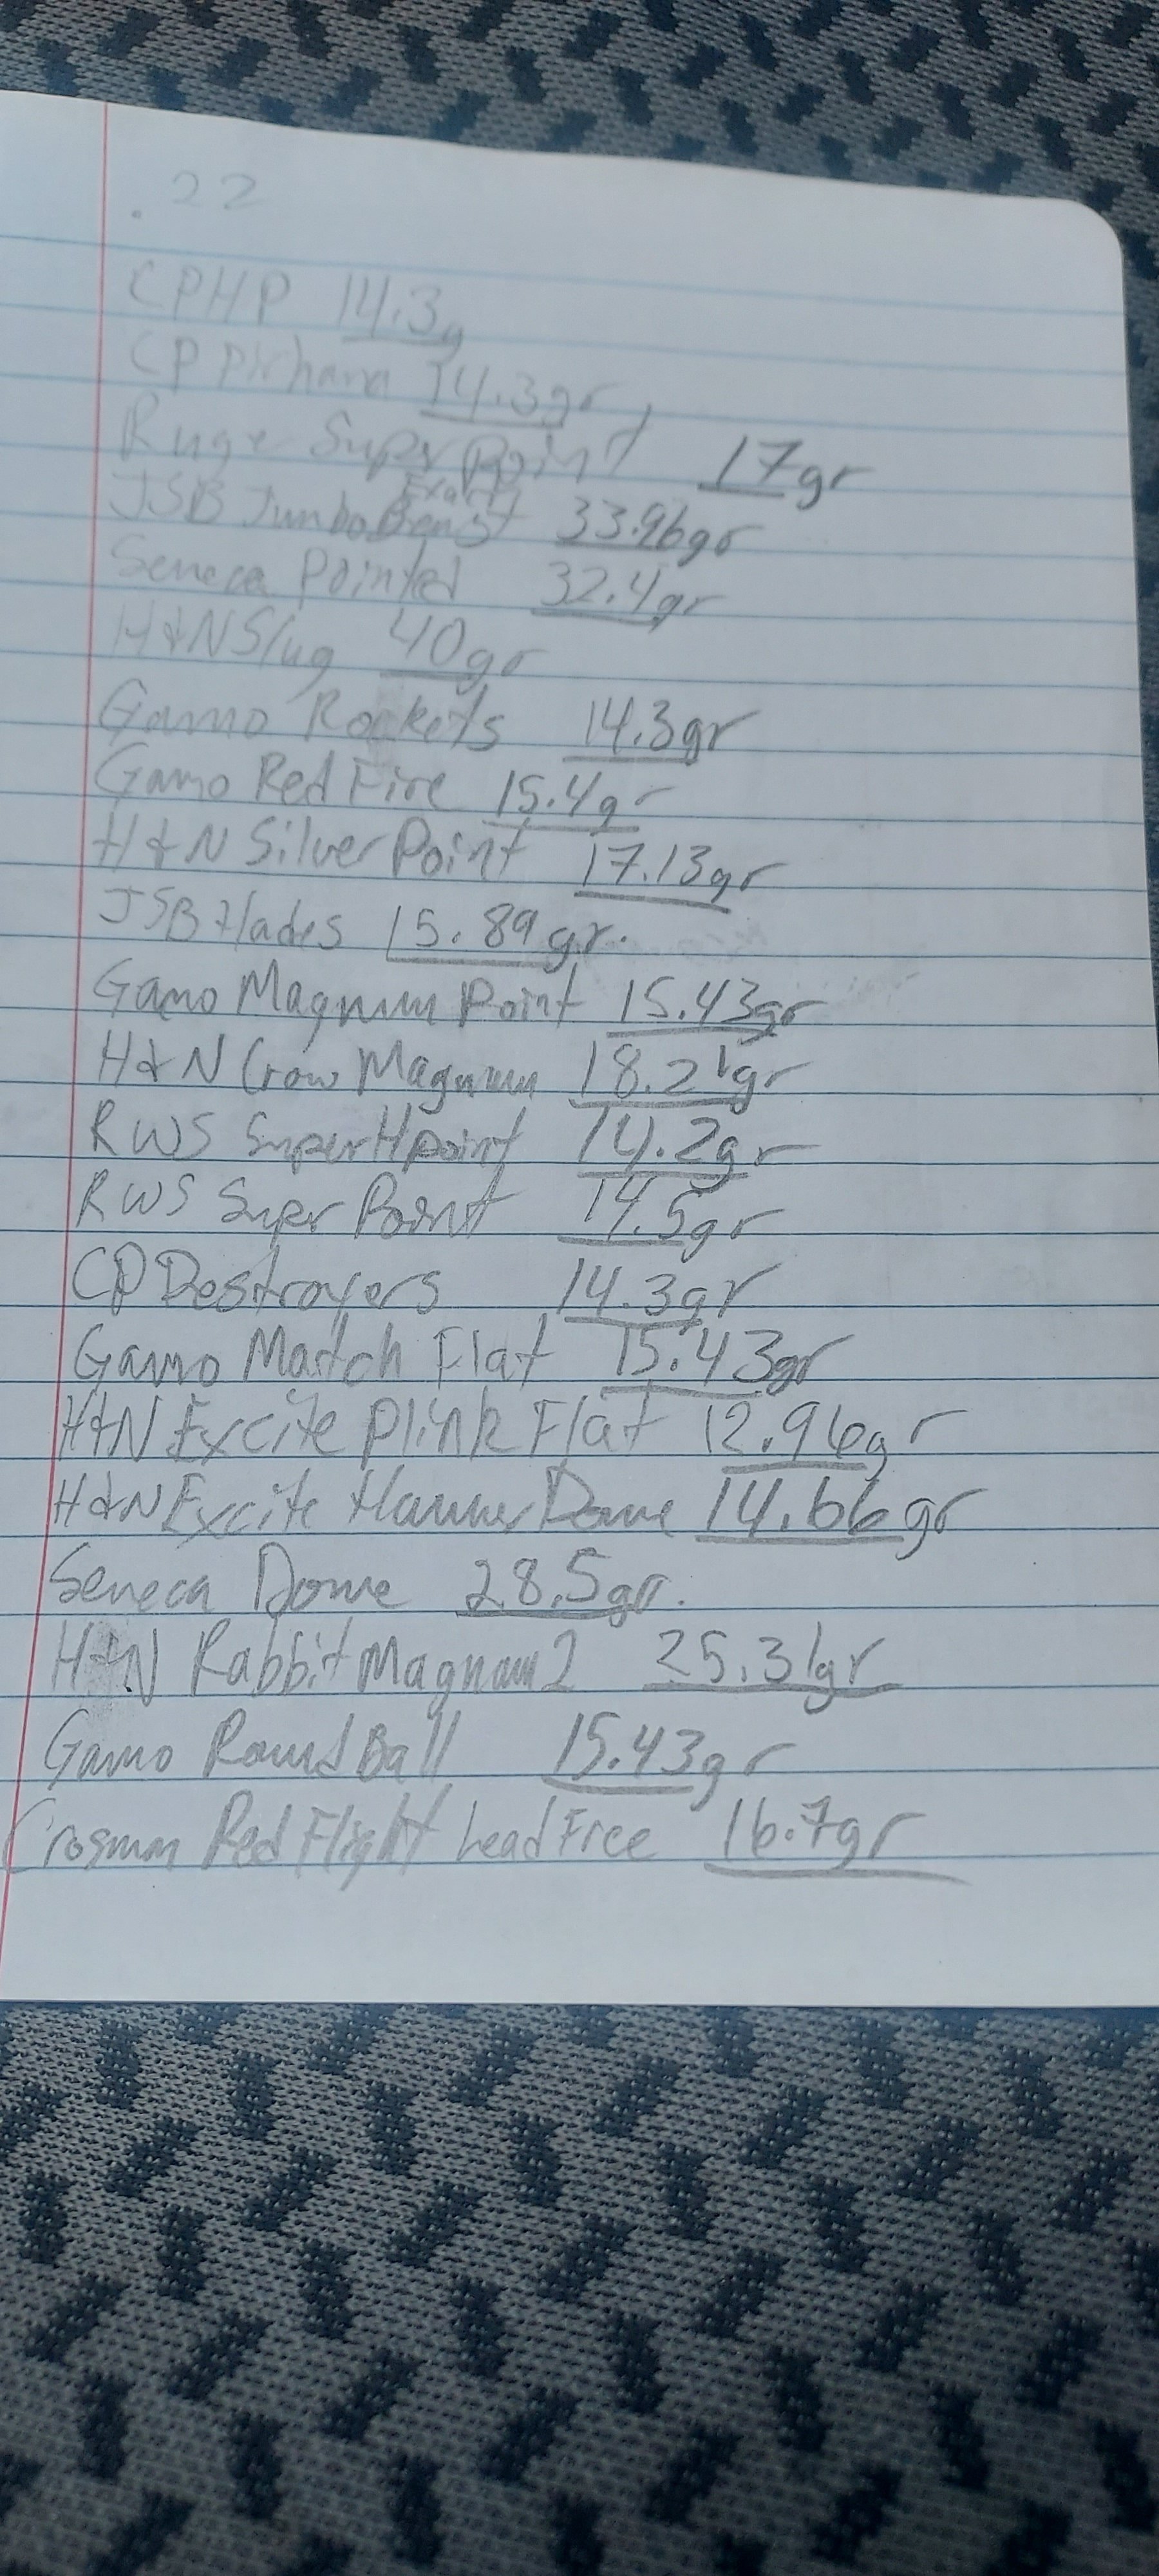 .22
CPHP 14.3g
CP Pirhana 14.3gr
Ruger Super Point 17gr
JSB Jumbo Exact Beast 33.96gr
Seneca Pointed 32.4gr
H&N Slug 40gr
Gamo Rockets 14.3gr
Gamo Red Fire 15.4gr
H&N Silver Point 17.13gr
JSB Hades 15.89gr.
Gamo Magnum Point 15.43gr
H&N Crow Magnum 18.21gr
RWS Super H point 14.2gr
RWS Super Point 14.5gr
CP Destroyers 14.3gr
Gamo Match Flat 15.43gr
H&N Excite Plink Flat 12.96gr
H&N Excite Hammer Dome 14.66gr
Seneca Dome 28.5gr.
H&N Rabbit Magnum 2 25.31gr
Gamo Round Ball 15.43gr
Crosman Red Flight Lead Free 16.7gr